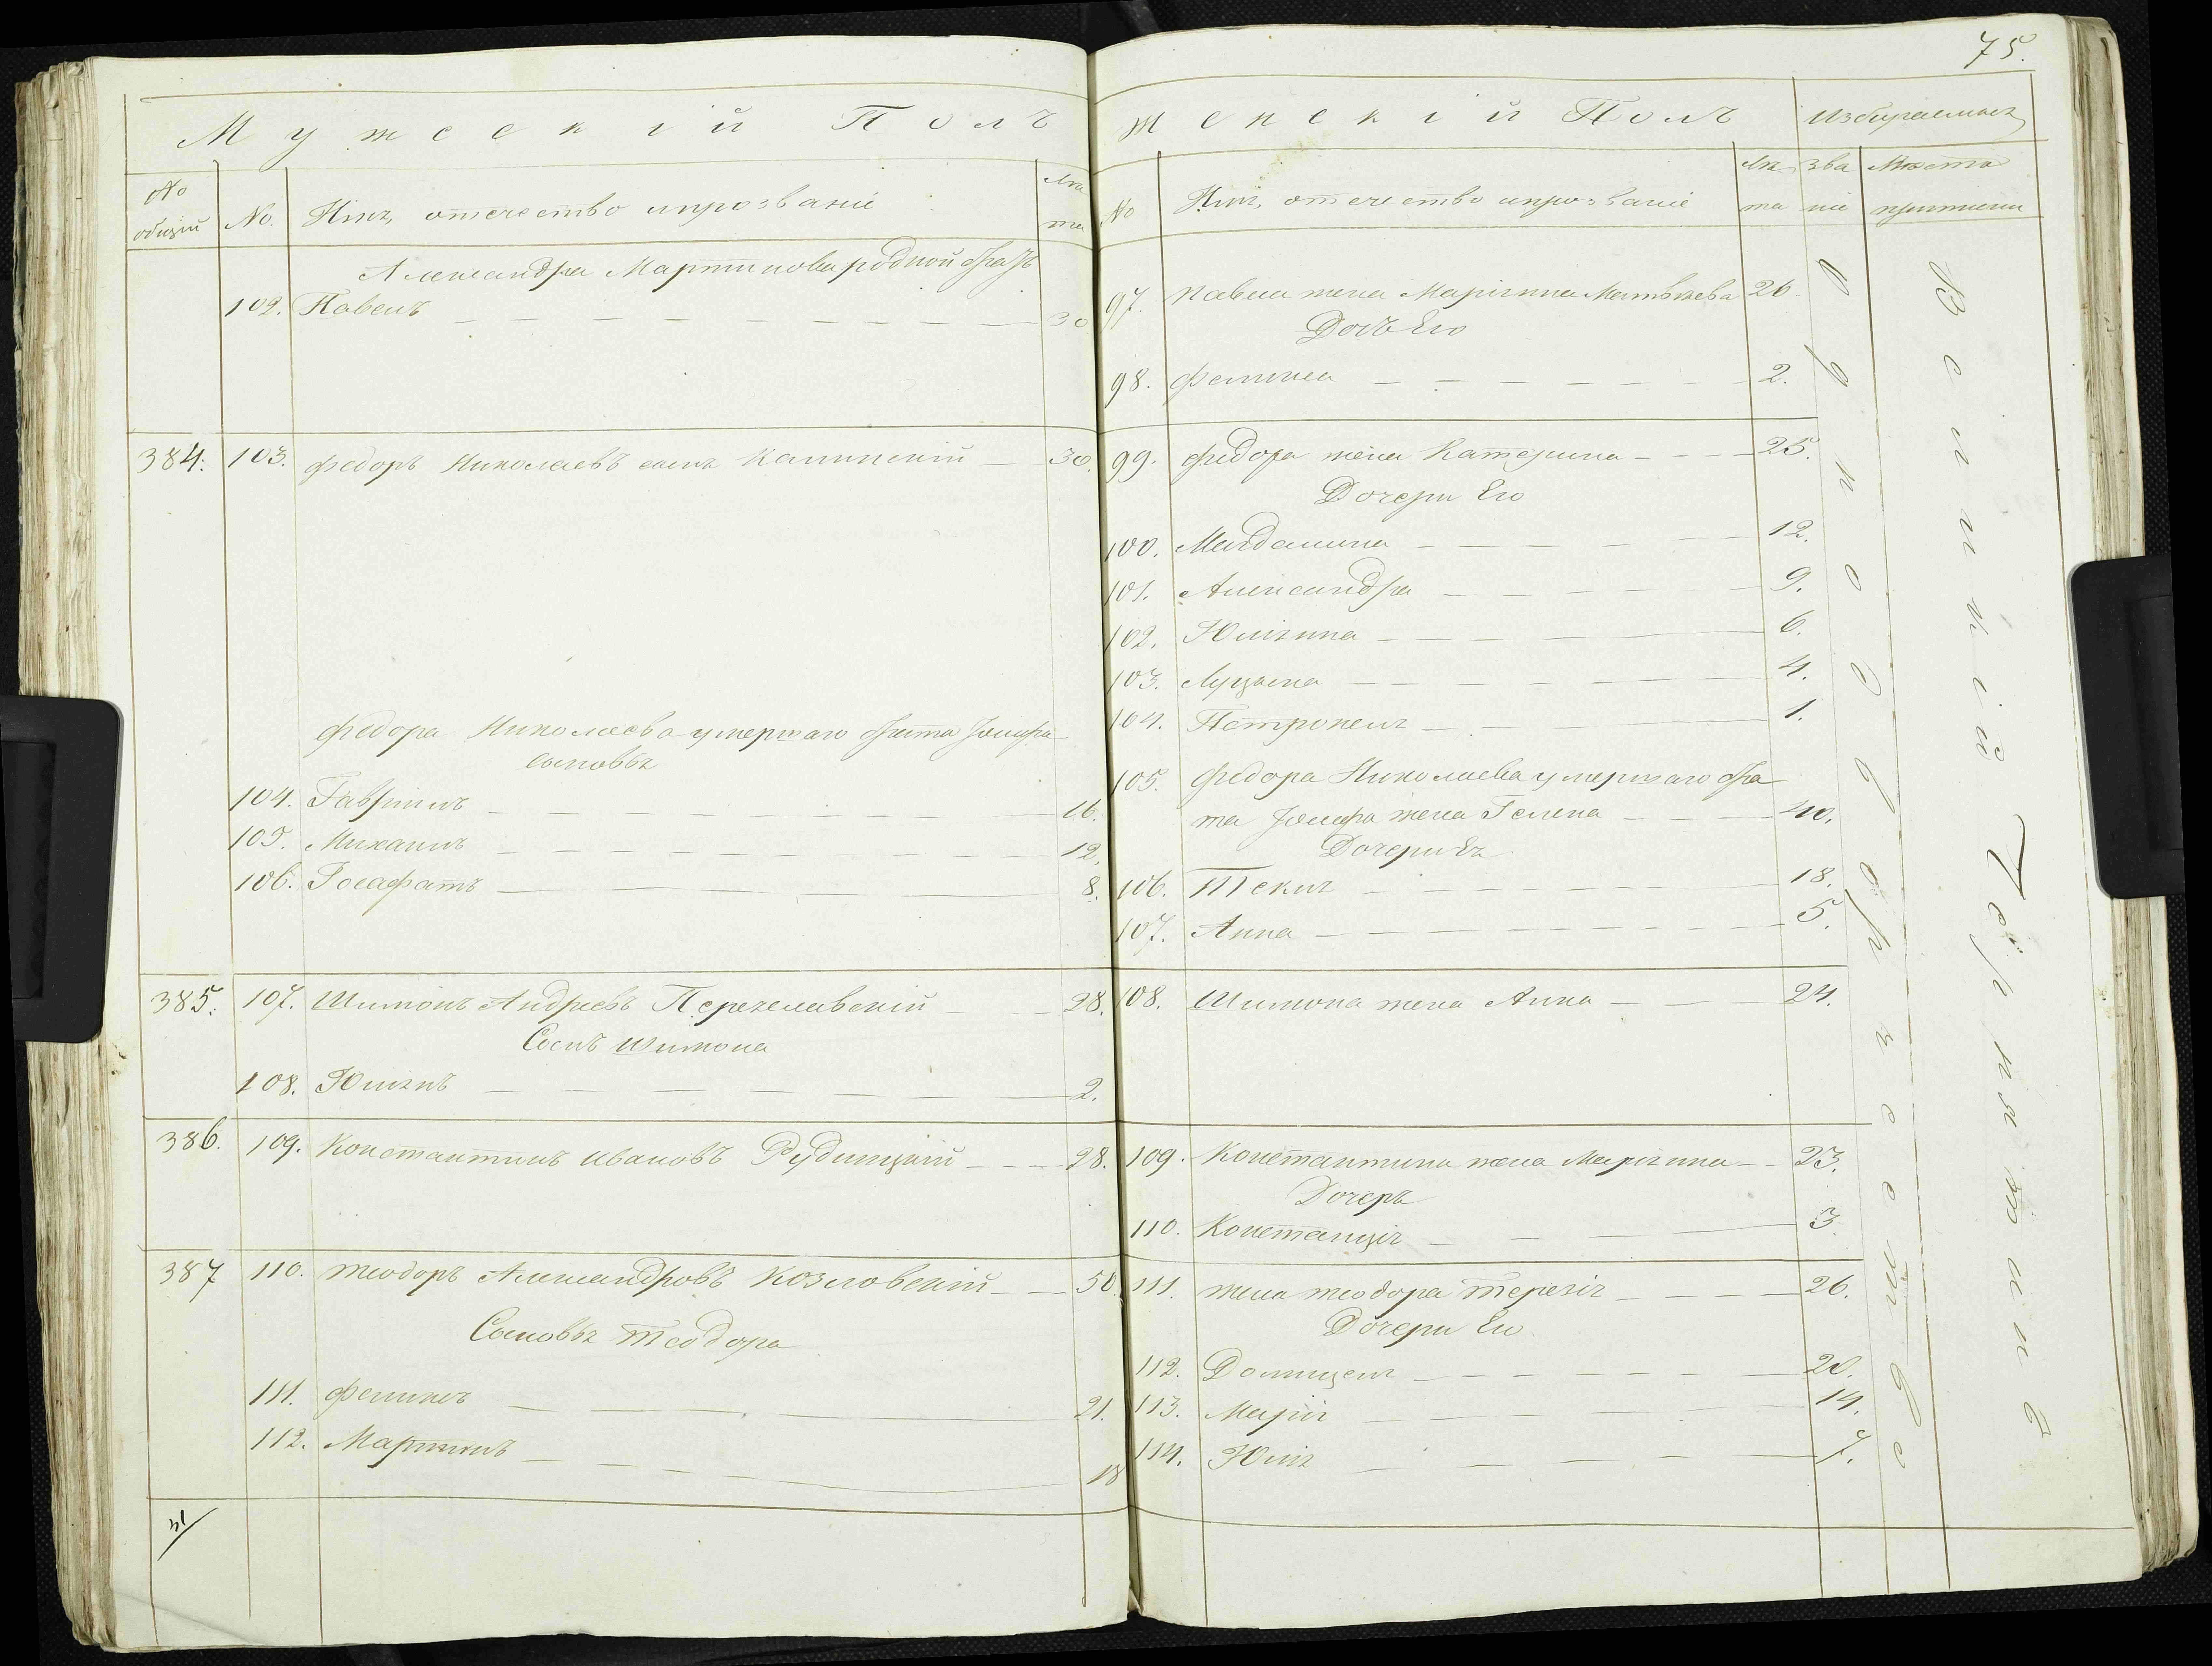 75.
Мужескій Полъ
№ общій
№.
Имя, отечество ипрозваніе
Лѣта
Александра Мартинова родной братъ
102. Павелъ 30
384. 103. Федоръ Николаевъ сынъ Калинскій 30.
Федора Николаева умершаго брата Іозифа
сыновья
104. Гавріилъ 16.
105. Михаилъ 12.
106. Іосафатъ 8.
385. 107. Шимонъ Андреевъ Перехеливскій 28.
Сынъ Шимона
108. Юліянъ 2.
386. 109. Константинъ Ивановъ Рудницкій 28.
387 110. Теодоръ Александровъ Козловскій 50.
Сыновья Теодора
111. Феликсъ 21.
112. Мартинъ 18
Женскій Полъ
Избираемыхъ
№
Имя, отечество ипрозваніе
Лѣта
Званіе
Мѣста
97. Павла жена Маріянна Матвѣева 26.
Дочь Его
98. Фелиція 2.
99. Федора жена Катерина 25.
Дочери Его
100. Магдалина 12.
101. Александра 9.
102. Юліянна 6.
103. Луцына 4.
104. Петронеля 1.
105. Федора Николаева умершаго бра
та Іозифа жена Гелена 40.
Дочери Ея
106. Текля 18.
107. Анна 5.
108. Шимона жена Анна 24.
109. Константина жена Маріянна 23.
Дочерь
110. Констанція 3.
111. Жена Теодора Терезія 26.
Дочери Его
112. Доминцеля 20.
113. Марія 14.
114. Юлія 7.
Однодворческое